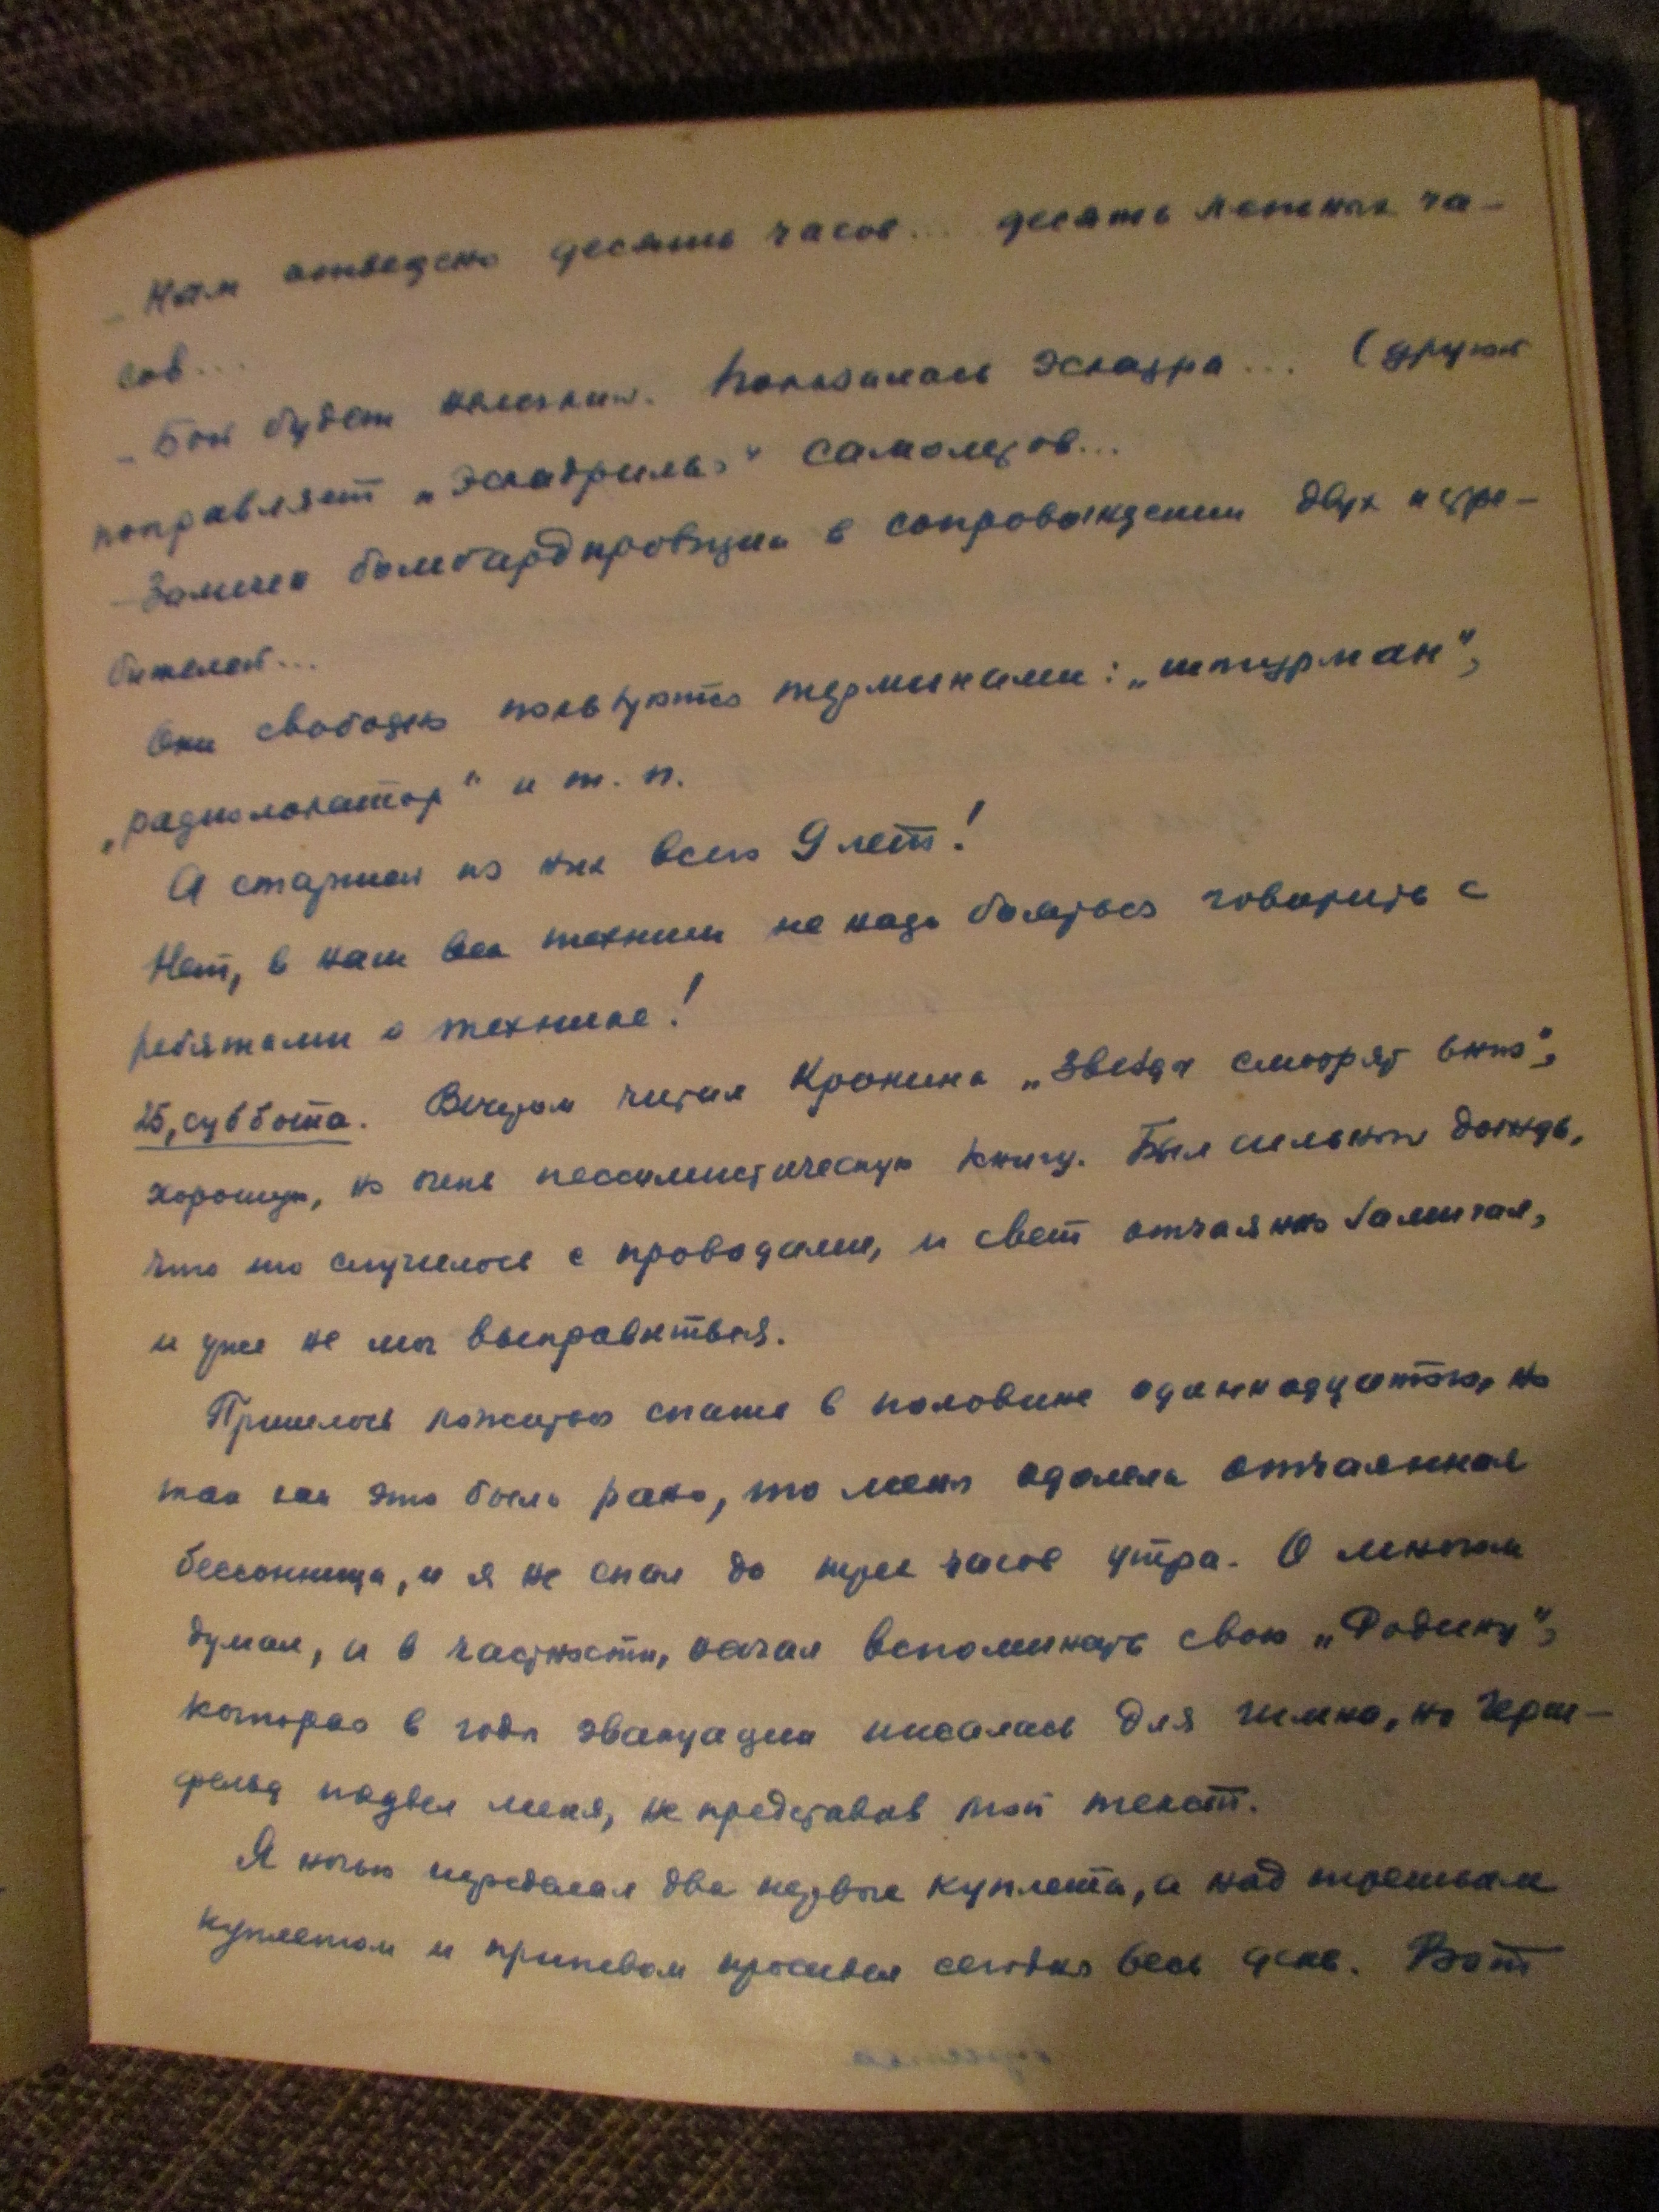 - Нам отведено десять часов... десять летных ча-
сов...
- Бой будет нелегким. Показалась эскадра... (другой
поправляет „эскадрилья" самолетов...
- Замечен бомбардировщик в сопровождении двух истре-
бителей...
Они свободно пользуются терминами: „штурман",
„радиолокатор" и т. п.
А старшему из них всего 9 лет!
Нет, в наш век техники не надо бояться говорить с
ребятами о технике!
25, суббота. Вечером читал Кронина „Звезды смотрят вниз",
хорошую, но очень пессимистическую книгу. Был сильный дождь,
что-то случилось с проводами, и свет отчаянно замигал,
и уже не мог выправиться.
Пришлось ложиться спать в половине одиннадцатого, но
так как это было рано, то меня одолела отчаянная
бессонница, и я не спал до трех часов утра. О многом
думал, и в частности, начал вспоминать свою „Родину",
которая в годы эвакуации писалась для гимна, но Герш-
фельд подвел меня, не представив мой текст.
Я ночью переделал два первые куплета, а над третьим
куплетом и припевом просидел сегодня весь день. Вот